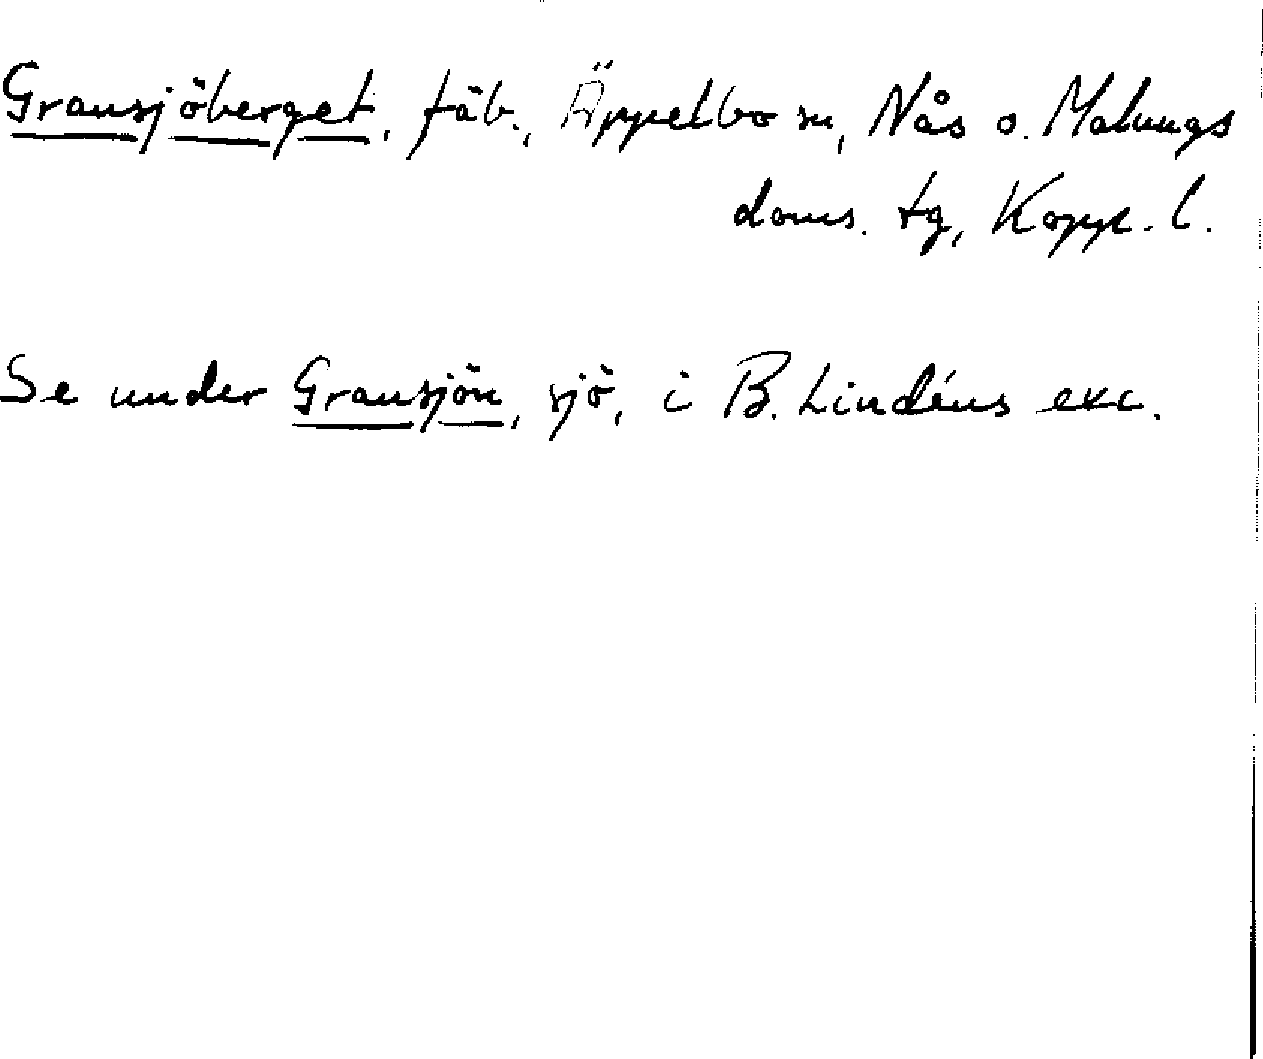 Gransjöberget, fäb., Äppelbo sn, Nås o. Malungs
doms. tg, Kopp. l.
Se under Gransjön, sjö, i B. Lindéns exc.